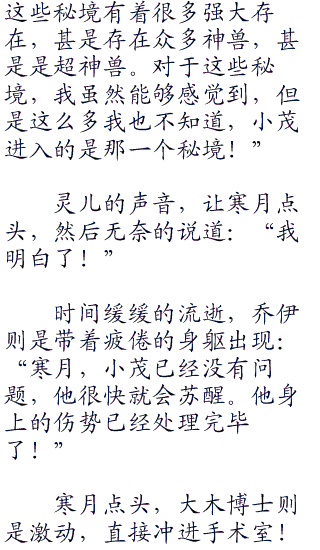 这些秘境有着很多强大存
在，甚是存在众多神兽，甚
是是超神兽。对于这些秘
境，我虽然能够感觉到，但
是这么多我也不知道，小茂
进入的是那一个秘境！”
灵儿的声音，让寒月点
头，然后无奈的说道：“我
明白了！”
时间缓缓的流逝，乔伊
则是带着疲倦的身躯出现：
“寒月，小茂已经没有问
题，他很快就会苏醒。他身
上的伤势已经处理完毕
了！”
寒月点头，大木博士则
是激动，直接冲进手术室！